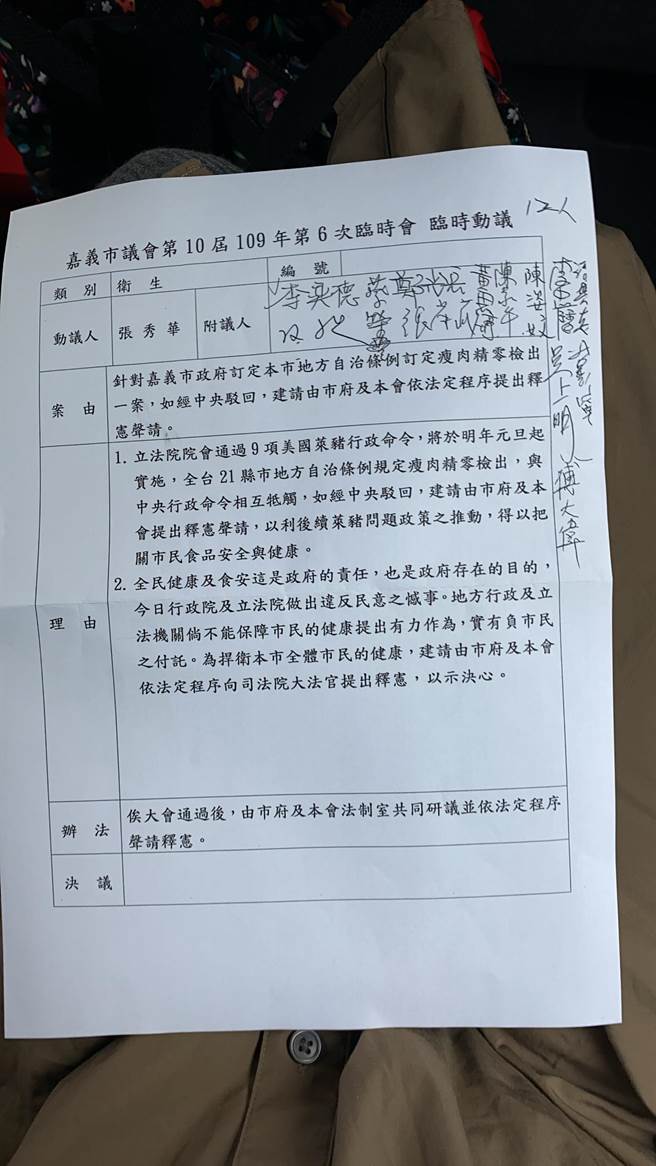 嘉義市議會第10屆109年第6次臨時會 臨時動議
12人
類 別 衛 生 編 號
動議人 張 秀 華 附議人
李奕德 蔡 鄭 黃 陳 陳姿妏
傅大偉
案 由
針對嘉義市政府訂定本市地方自治條例訂定瘦肉精零檢出
一案，如經中央駁回，建請由市府及本會依法定程序提出釋
憲聲請。
理 由
1. 立法院院會通過9項美國萊豬行政命令，將於明年元旦起
實施，全台21縣市地方自治條例規定瘦肉精零檢出，與
中央行政命令相互牴觸，如經中央駁回，建請由市府及本
會提出釋憲聲請，以利後續萊豬問題政策之推動，得以把
關市民食品安全與健康。
2. 全民健康及食安這是政府的責任，也是政府存在的目的，
今日行政院及立法院做出違反民意之憾事。地方行政及立
法機關倘不能保障市民的健康提出有力作為，實有負市民
之付託。為捍衛本市全體市民的健康，建請由市府及本會
依法定程序向司法院大法官提出釋憲，以示決心。
辦 法
俟大會通過後，由市府及本會法制室共同研議並依法定程序
聲請釋憲。
決 議